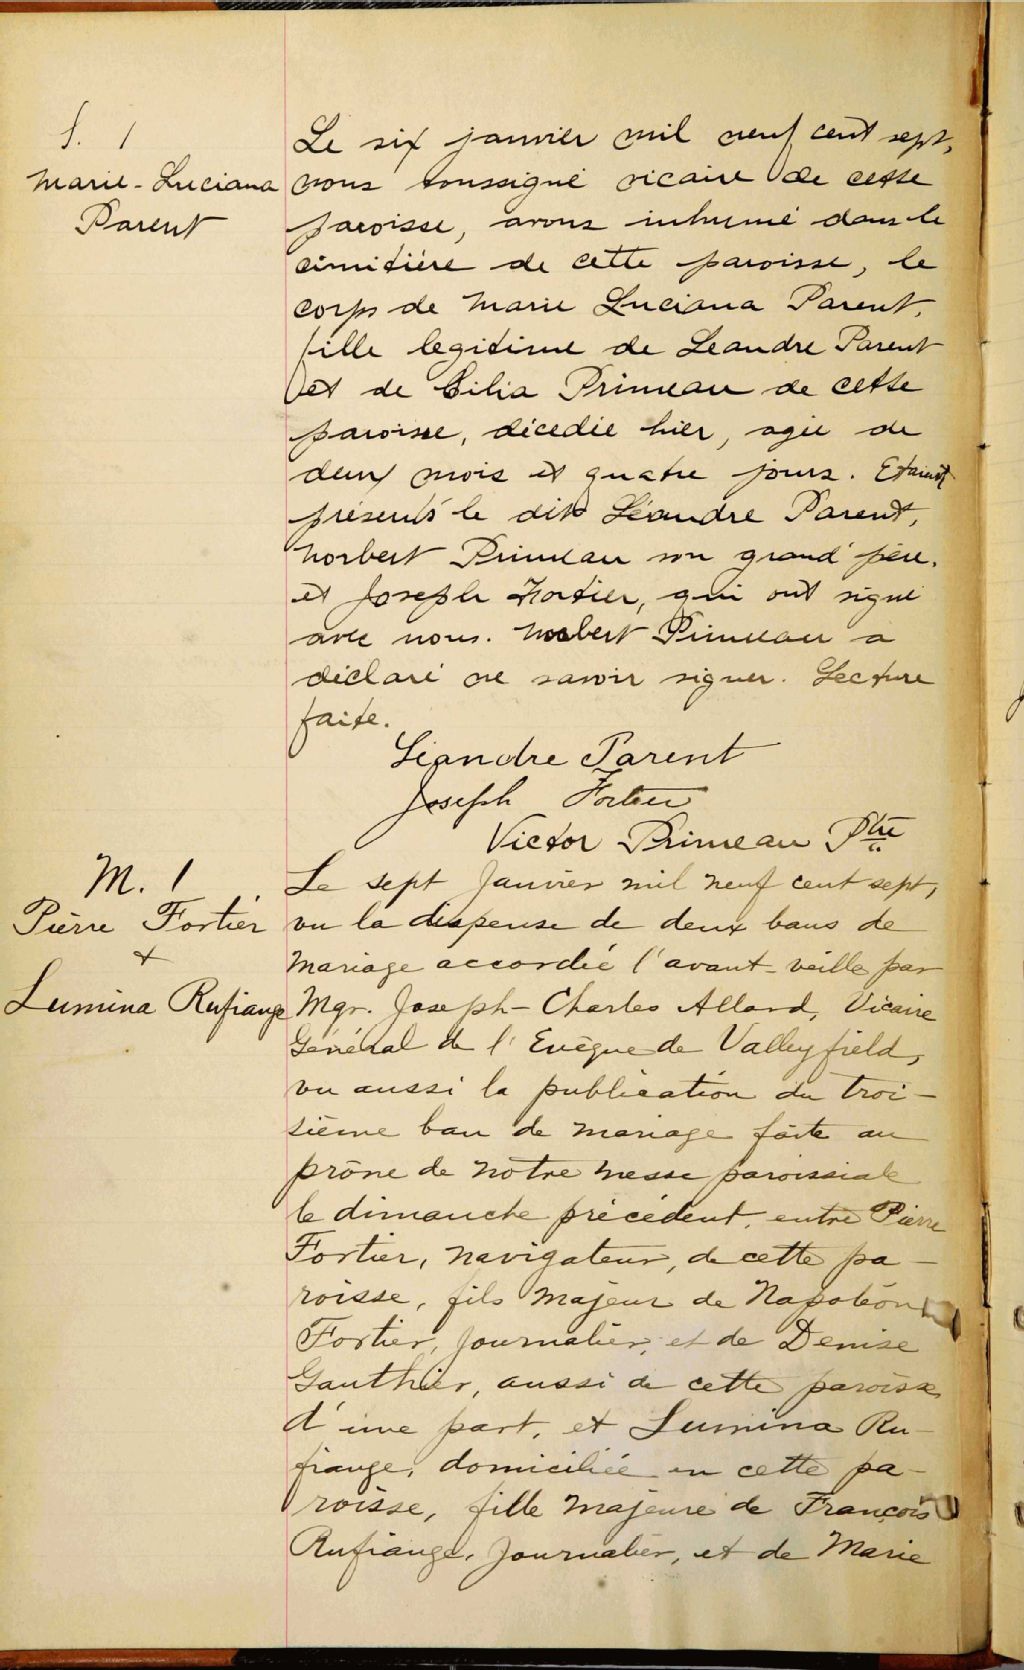 S. 1
Marie-Luciana
Parent
Le six janvier mil neuf cent sept,
nous soussigné vicaire de cette
paroisse, avons inhumé dans le
cimitière de cette paroisse, le
corps de Marie Luciana Parent,
fille legitime de Leandre Parent
et de Célia Primeau de cette
paroisse, décedée hier, agée de
deux mois et quatre jours. Etaient
présents le dit Léandre Parent,
Norbert Primeau son grand père.
et Joseph Fortier, qui ont signé
avec nous. Norbert Primeau a
déclaré ne savoir signer. Lecture
faite.
Léandre Parent
Joseph Fortier
Victor Primeau Ptre
M. 1
Pierre Fortier
+
Lumina Rufiange
Le sept Janvier mil neuf cent sept,
vu la dispense de deux bans de
mariage accordée l'avant-veille par
Mgr. Joseph-Charles Allard, Vicaire
Général de l'Evêque de Valleyfield,
vu aussi la publication du troi-
sième ban de mariage faite au
prône de notre messe paroissiale
le dimanche précédent, entre Pierre
Fortier, navigateur, de cette pa-
roisse, fils majeur de Napoléon
Fortier, journalier, et de Denise
Gauthier, aussi de cette paroisse
d'une part, et Lumina Ru-
fiange, domiciliée en cette pa-
roisse, fille majeure de François
Rufiange, journalier, et de Marie